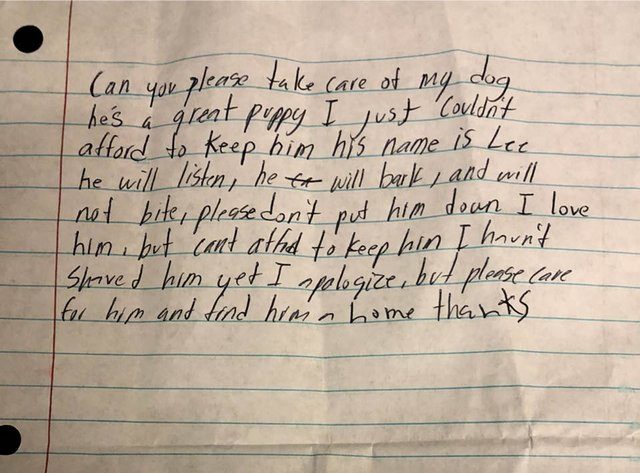 Can you please take care of my dog
he's a great puppy I just couldn't
afford to keep him his name is Lee
he will listen, he will bark, and will
not bite, please don't put him down I love
him, but cant afford to keep him I havn't
shaved him yet I apologize, but please care
for him and find him a home thanks